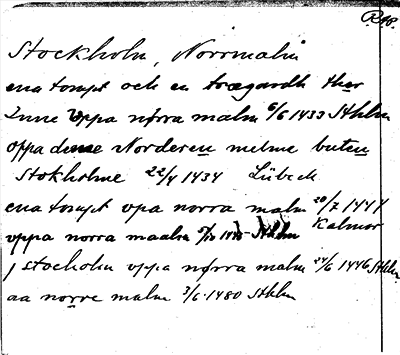 Rap.
Stockholm, Norrmalm
ena tompt och en trægardh ther
Inne vppa nørra malm 6/6 1433 Sthlm
oppa denne Norderen melme buten
Stokholme 22/4 1434 Lübeck
ena tompt vpa norra malm 20/7 1441 Kalmar
vppa norra maalm Sthlm
j stocholm vppa nørra malm 24/6 1446 Sthlm
aa norre malm 3/6 1480 Sthlm